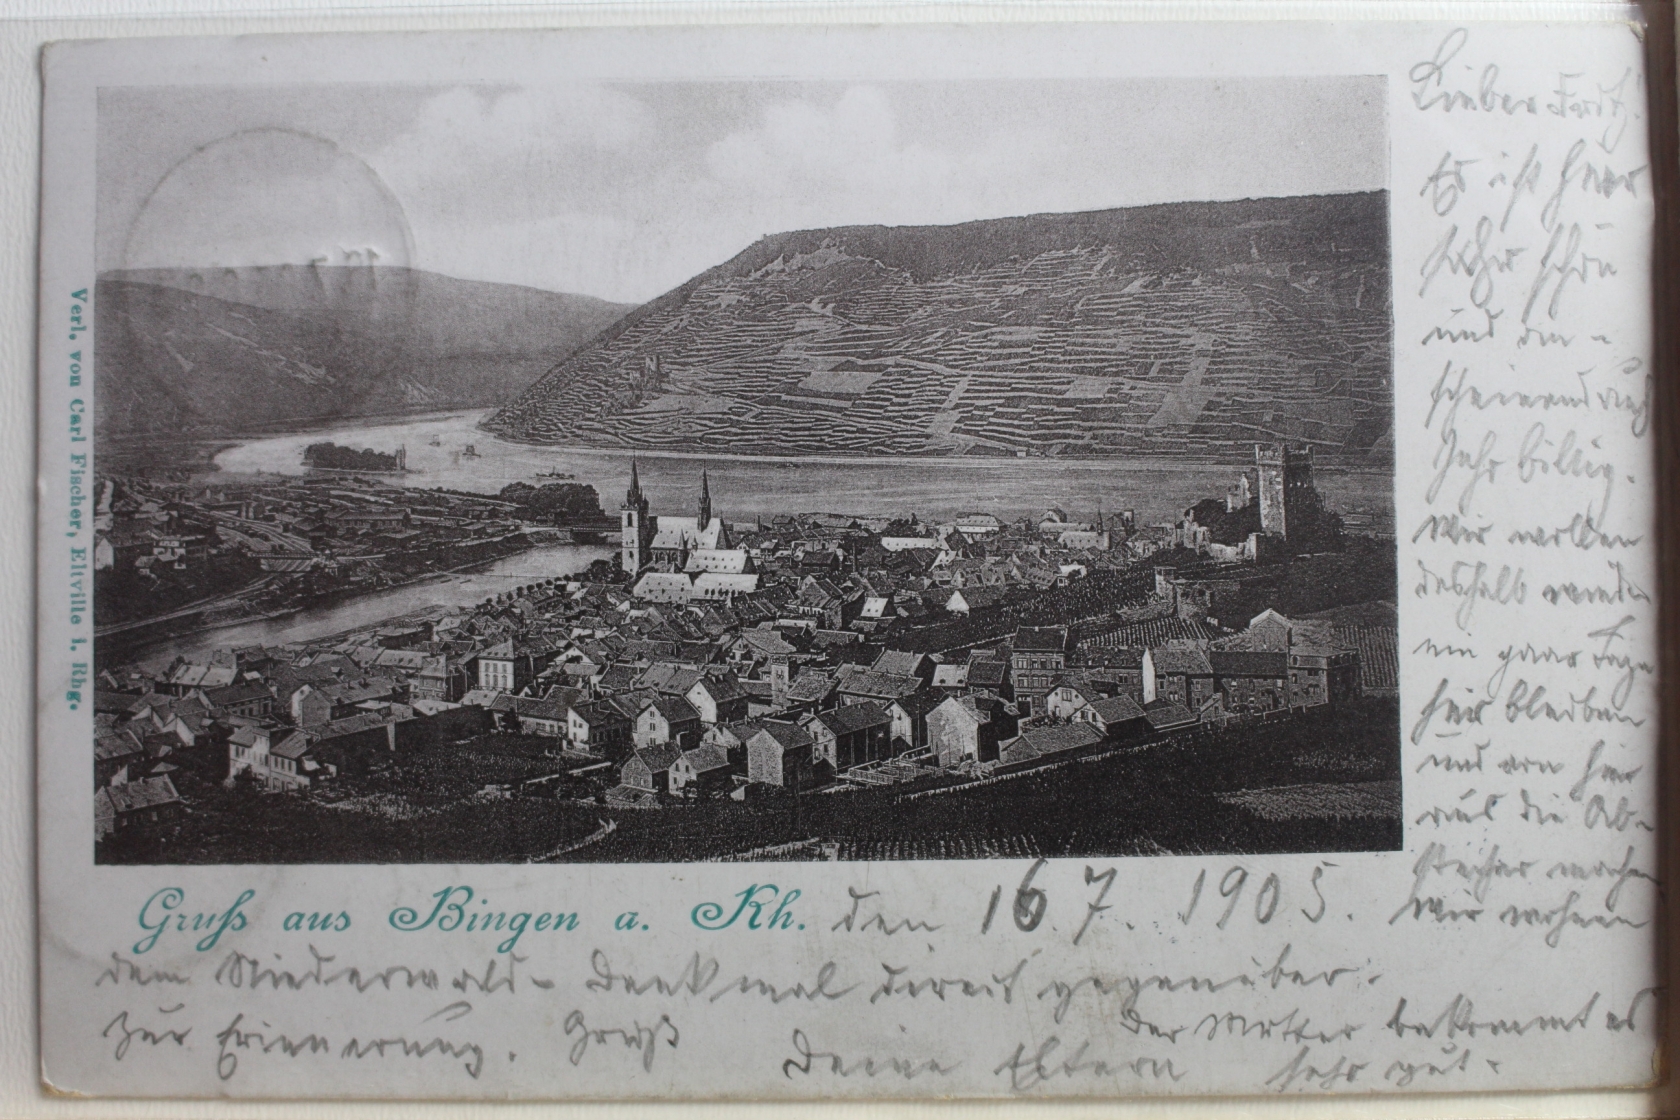 Verl. von Carl Fischer, Eltville i. Rhg.
Lieber Fritz!
Es ist hier
sehr schön
und an-
scheinend auch
sehr billig.
Wir wollen
deshalb
ein paar Tage
hier bleiben
und von hier
aus die Ab-
stecher machen
Wir wohnen
Gruß aus Bingen a. Rh. den 16. 7. 1905.
dem Niederwald-Denkmal direct gegenüber.
Zur Erinnerung. Gruß
Deine Eltern
Der Mutter bekommt es
sehr gut.